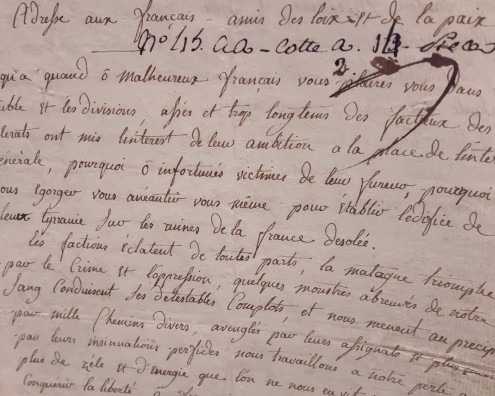 Adresse aux français - amis des loix et de la paix
No 15. aa - Cotte a. 1
2
qu'a quand ô malheureux français vous plairez vous dans
uble et les divisions, assés et trop longtems des facteux des
lerats ont mis linterest de leur ambition a la place de linter
énérale, pourquoi ô infortunés victimes de leur fureur, pourquoi
ous egorger vous anéantir vous même pour etablir lédifice de
leur tyranie sur les ruines de la france desolée.
les factions éclatent de toutes parts, la montagne triomphe
par le Crime et l'oppression, quelques monstres abreuvés de notre
sang Conduisent ses detestables Complots, et nous menent au precip
par mille Chemins divers, aveuglés par leurs assignats et plus
par leurs insinuations perfides nous travaillons a notre perte a
plus de zéle et d'energie que l'on ne nous en vit
Conquérir la liberté